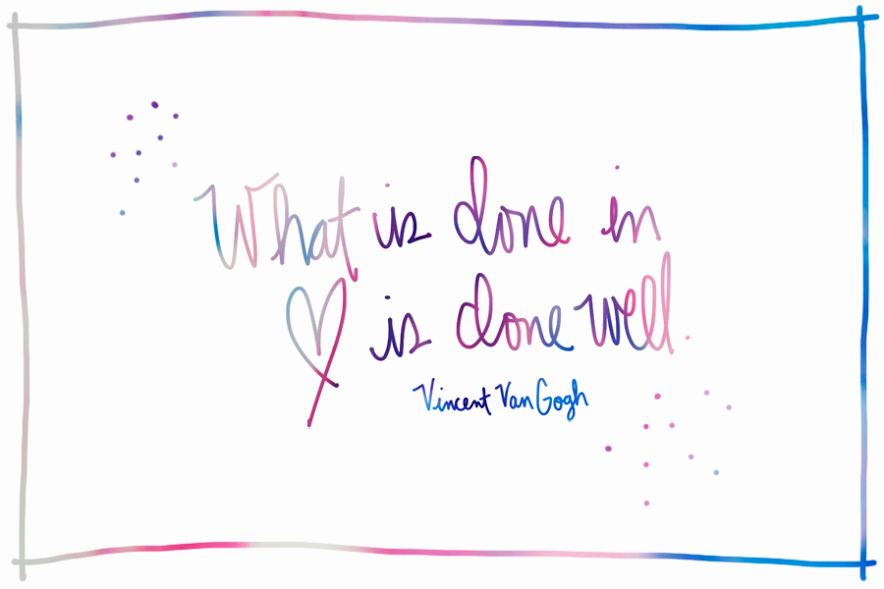 What is done in
♡ is done well.
Vincent Van Gogh